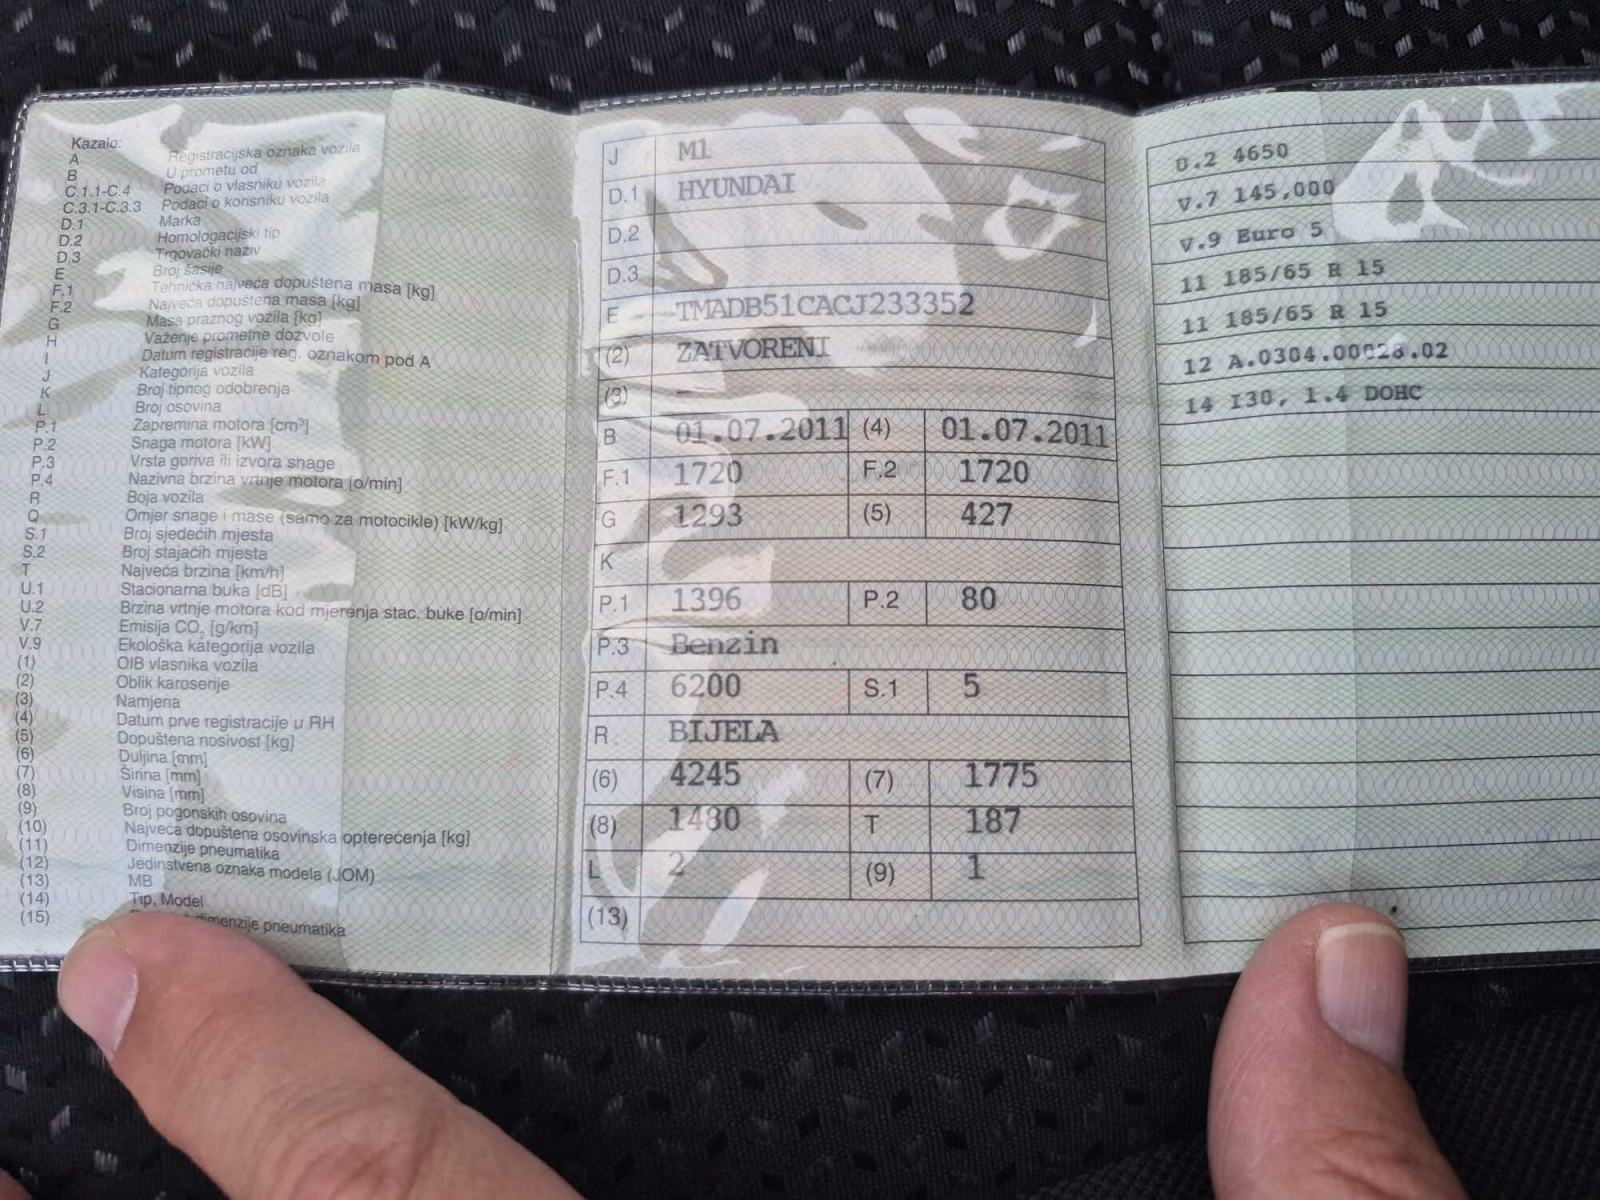 Kazalo:
A Registracijska oznaka vozila
B U prometu od
C.1.1-C.4 Podaci o vlasniku vozila
C.3.1-C.3.3 Podaci o korisniku vozila
D.1 Marka
D.2 Homologacijski tip
D.3 Trgovački naziv
E Broj šasije
F.1 Tehnička najveća dopuštena masa [kg]
F.2 Najveća dopuštena masa [kg]
G Masa praznog vozila [kg]
H Važenje prometne dozvole
I Datum registracije reg. oznakom pod A
J Kategorija vozila
K Broj tipnog odobrenja
L Broj osovina
P.1 Zapremina motora [cm³]
P.2 Snaga motora [kW]
P.3 Vrsta goriva ili izvora snage
P.4 Nazivna brzina vrtnje motora [o/min]
R Boja vozila
Q Omjer snage i mase (samo za motocikle) [kW/kg]
S.1 Broj sjedećih mjesta
S.2 Broj stajaćih mjesta
T Najveća brzina [km/h]
U.1 Stacionarna buka [dB]
U.2 Brzina vrtnje motora kod mjerenja stac. buke [o/min]
V.7 Emisija CO₂ [g/km]
V.9 Ekološka kategorija vozila
(1) OIB vlasnika vozila
(2) Oblik karoserije
(3) Namjena
(4) Datum prve registracije u RH
(5) Dopuštena nosivost [kg]
(6) Duljina [mm]
(7) Širina [mm]
(8) Visina [mm]
(9) Broj pogonskih osovina
(10) Najveća dopuštena osovinska opterećenja [kg]
(11) Dimenzije pneumatika
(12) Jedinstvena oznaka modela (JOM)
(13) MB
(14) Tip, Model
(15) dimenzije pneumatika
J M1
D.1 HYUNDAI
D.2
D.3
E TMADB51CACJ233352
(2) ZATVORENI
(3) -
B 01.07.2011 (4) 01.07.2011
F.1 1720 F.2 1720
G 1293 (5) 427
K
P.1 1396 P.2 80
P.3 Benzin
P.4 6200 S.1 5
R. BIJELA
(6) 4245 (7) 1775
(8) 1480 T 187
L 2 (9) 1
(13)
U.2 4650
V.7 145,000
V.9 Euro 5
11 185/65 R 15
11 185/65 R 15
12 A.0304.00028.02
14 I30, 1.4 DOHC